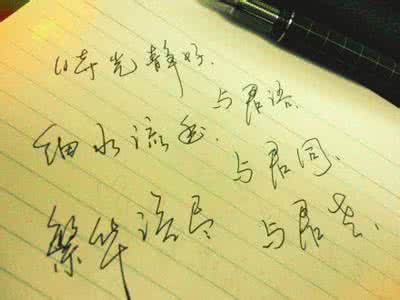 时光静好.
与君语.
细水流年.
与君同、
繁华落尽
与君老.